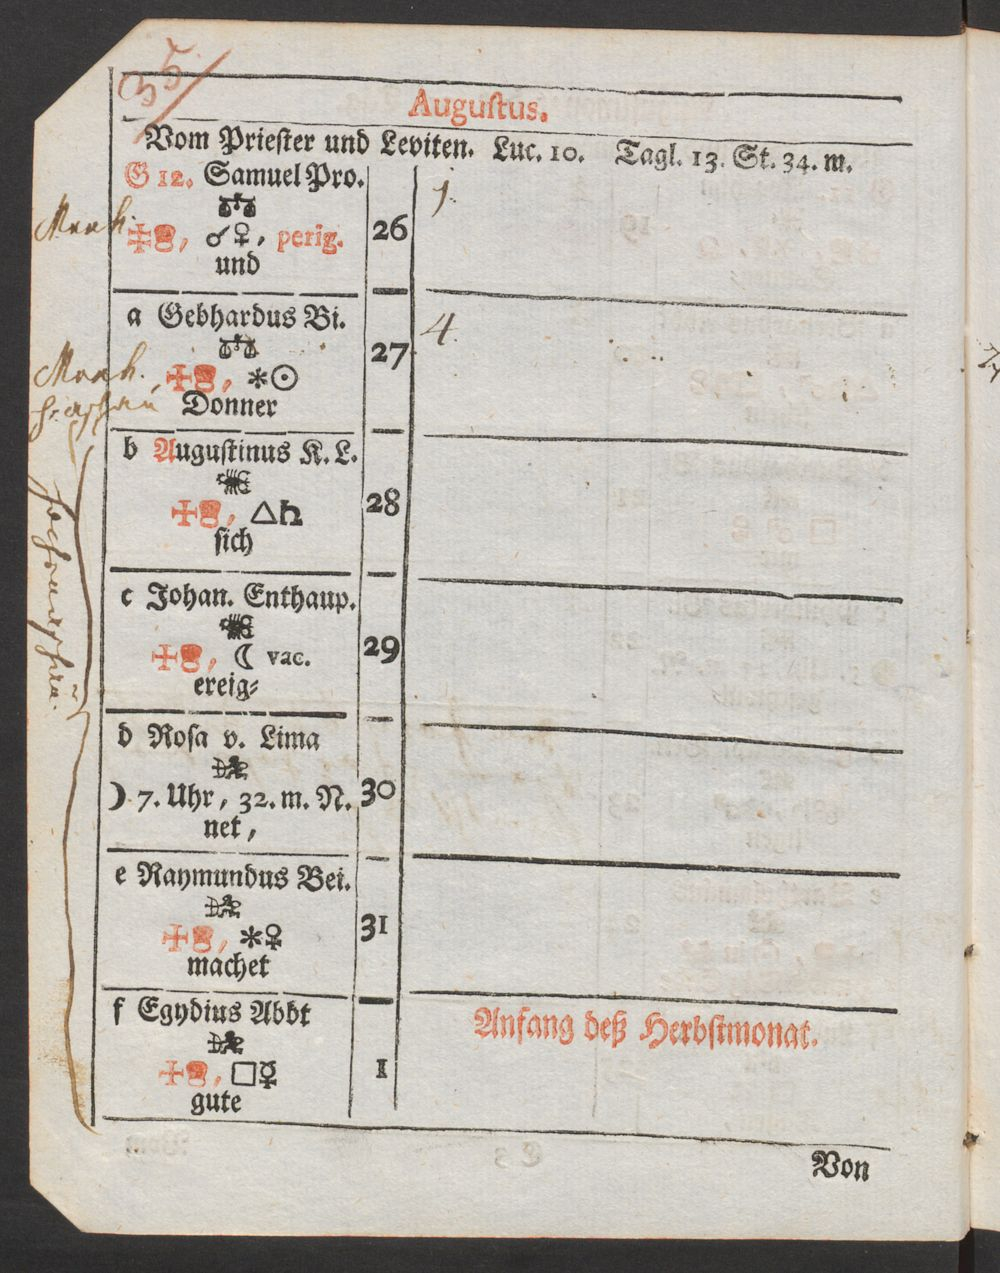 35
Augustus.
Vom Priester und Leviten. Luc. 10. Tagl. 13. St. 34. m.
G 12. Samuel Pro.
♎
☌♀, perig.
und
26
1.
a Gebhardus Bi.
♎
⚹☉
Donner
27
4.
b Augustinus K. L.
♏
△♄
sich
28
c Johan. Enthaup.
♏
☾ vac.
ereig⸗
29
d Rosa v. Lima
♐
☽ 7. Uhr, 32. m. N.
net,
30
e Raymundus Bei.
♐
⚹♀
machet
31
f Egydius Abbt
♐
□☿
gute
1
Anfang deß Herbstmonat.
Von